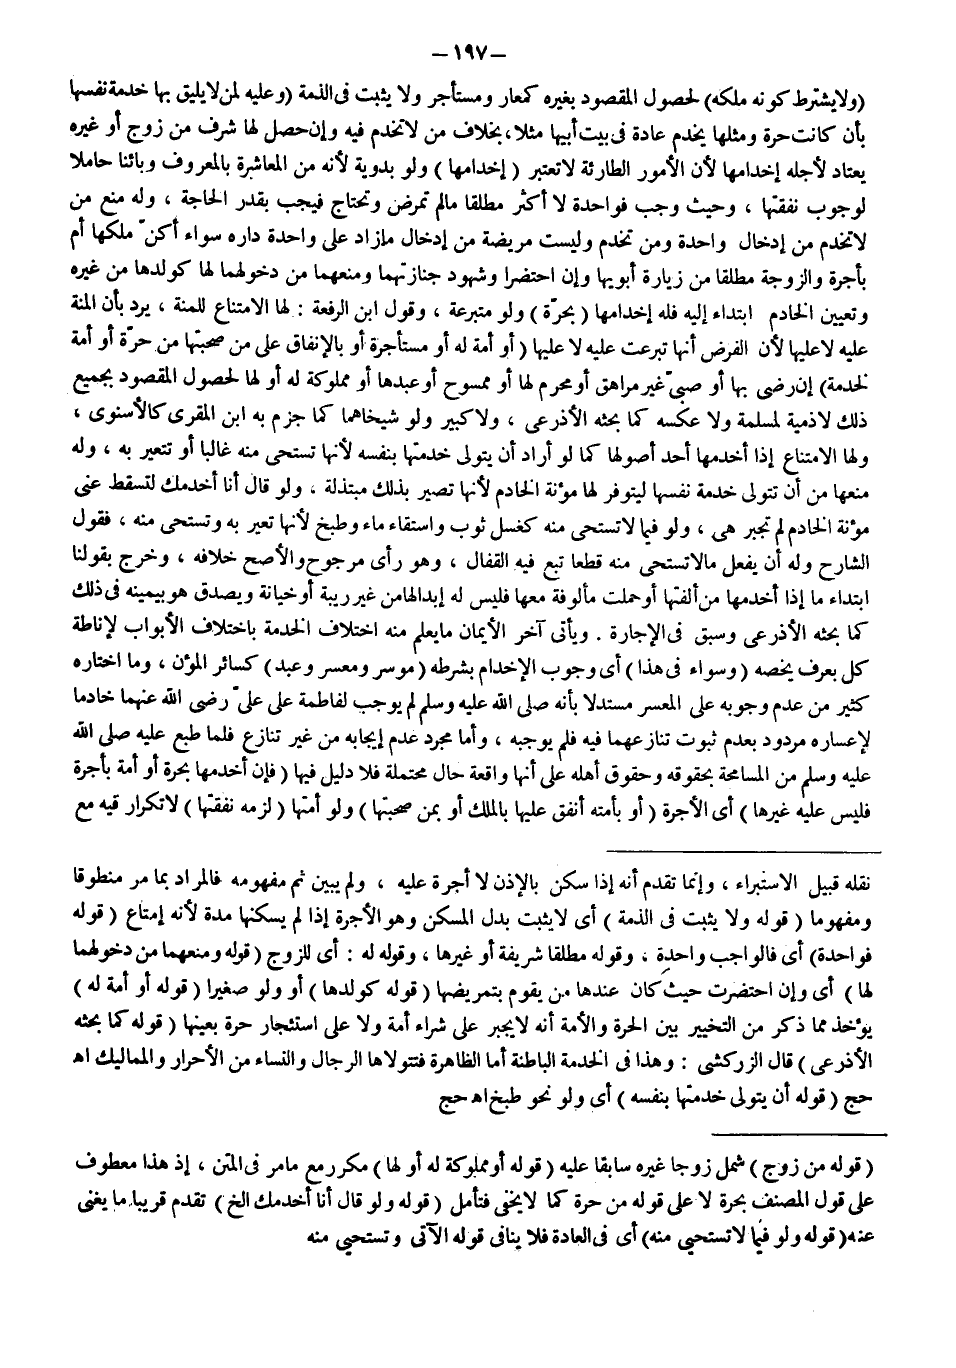 — ١٩٧ —
(ولا يشترط كونه ملكه) لحصول المقصود بغيره كمعار ومستأجر ولا يثبت فى الذمة (وعليه لمن لا يليق بها خدمة نفسها
بأن كانت حرة ومثلها يخدم عادة فى بيت أبيها مثلا، بخلاف من لا تخدم فيه وإن حصل لها شرف من زوج أو غيره
يعتاد لأجله إخدامها لأن الأمور الطارئة لا تعتبر (إخدامها) ولو بدوية لأنه من المعاشرة بالمعروف وبائنا حاملا
لوجوب نفقتها ، وحيث وجب فواحدة لا أكثر مطلقا مالم تمرض وتحتاج فيجب بقدر الحاجة ، وله منع من
لا تخدم من إدخال واحدة ومن تخدم وليست مريضة من إدخال مازاد على واحدة داره سواء أكنّ ملكها أم
بأجرة والزوجة مطلقا من زيارة أبويها وإن احتضرا وشهود جنازتهما ومنعهما من دخولهما لها كولدها من غيره
وتعيين الخادم ابتداء إليه فله إخدامها (بحرّة) ولو متبرعة ، وقول ابن الرفعة : لها الامتناع للمنة ، يرد بأن المنة
عليه لاعليها لأن الفرض أنها تبرعت عليه لا عليها (أو أمة له أو مستأجرة أو بالإنفاق على من صحبتها من حرّة أو أمة
لخدمة) إن رضى بها أو صبىّ غير مراهق أو محرم لها أو ممسوح أو عبدها أو مملوكة له أو لها لحصول المقصود بجميع
ذلك لاذمية لمسلمة ولا عكسه كما بحثه الأذرعى ، ولا كبير ولو شيخاهما كما جزم به ابن المقرى كالأسنوى ،
ولها الامتناع إذا أخدمها أحد أصولها كما لو أراد أن يتولى خدمتها بنفسه لأنها تستحى منه غالبا أو تتعير به ، وله
منعها من أن تتولى خدمة نفسها ليتوفر لها مؤنة الخادم لأنها تصير بذلك مبتذلة ، ولو قال أنا أخدمك لتسقط عنى
مؤنة الخادم لم تجبر هى ، ولو فيما لا تستحى منه كغسل ثوب واستقاء ماء وطبخ لأنها تعير به وتستحى منه ، فقول
الشارح وله أن يفعل مالا تستحى منه قطعا تبع فيه القفال ، وهو رأى مرجوح والأصح خلافه ، وخرج بقولنا
ابتداء ما إذا أخدمها من ألفتها أو حملت مألوفة معها فليس له إبدالها من غير ريبة أو خيانة ويصدق هو بيمينه فى ذلك
كما بحثه الأذرعى وسبق فى الإجارة . ويأتى آخر الأيمان مايعلم منه اختلاف الخدمة باختلاف الأبواب لإناطة
كل بعرف يخصه (وسواء فى هذا) أى وجوب الإخدام بشرطه (موسر ومعسر وعبد) كسائر المؤن ، وما اختاره
كثير من عدم وجوبه على المعسر مستدلا بأنه صلى الله عليه وسلم لم يوجب لفاطمة على علىّ رضى الله عنهما خادما
لإعساره مردود بعدم ثبوت تنازعهما فيه فلم يوجبه ، وأما مجرد عدم إيجابه من غير تنازع فلما طبع عليه صلى الله
عليه وسلم من المسامحة بحقوقه وحقوق أهله على أنها واقعة حال محتملة فلا دليل فيها (فإن أخدمها بحرة أو أمة بأجرة
فليس عليه غيرها) أى الأجرة (أو بأمته أنفق عليها بالملك أو بمن صحبتها) ولو أمتها (لزمه نفقتها) لا تكرار فيه مع
نقله قبيل الاستبراء ، وإنما تقدم أنه إذا سكن بالإذن لا أجرة عليه ، ولم يبين ثم مفهومه فالمراد بما مر منطوقا
ومفهوما (قوله ولا يثبت فى الذمة) أى لايثبت بدل المسكن وهو الأجرة إذا لم يسكنها مدة لأنه إمتاع (قوله
فواحدة) أى فالواجب واحدة ، وقوله مطلقا شريفة أو غيرها ، وقوله له : أى للزوج (قوله ومنعهما من دخولهما
لها) أى وإن احتضرت حيث كان عندها من يقوم بتمريضها (قوله كولدها) أو ولو صغيرا (قوله أو أمة له)
يؤخذ مما ذكر من التخيير بين الحرة والأمة أنه لايجبر على شراء أمة ولا على استئجار حرة بعينها (قوله كما بحثه
الأذرعى) قال الزركشى : وهذا فى الخدمة الباطنة أما الظاهرة فتتولاها الرجال والنساء من الأحرار والمماليك اه
حج (قوله أن يتولى خدمتها بنفسه) أى ولو نحو طبخ اه حج
(قوله من زوج) شمل زوجا غيره سابقا عليه (قوله أو مملوكة له أو لها) مكرر مع مامر فى المتن ، إذ هذا معطوف
على قول المصنف بحرة لا على قوله من حرة كما لايخفى فتأمل (قوله ولو قال أنا أخدمك الخ) تقدم قريبا مايغنى
عنه (قوله ولو فيما لا تستحيى منه) أى فى العادة فلا ينافى قوله الآتى وتستحيى منه